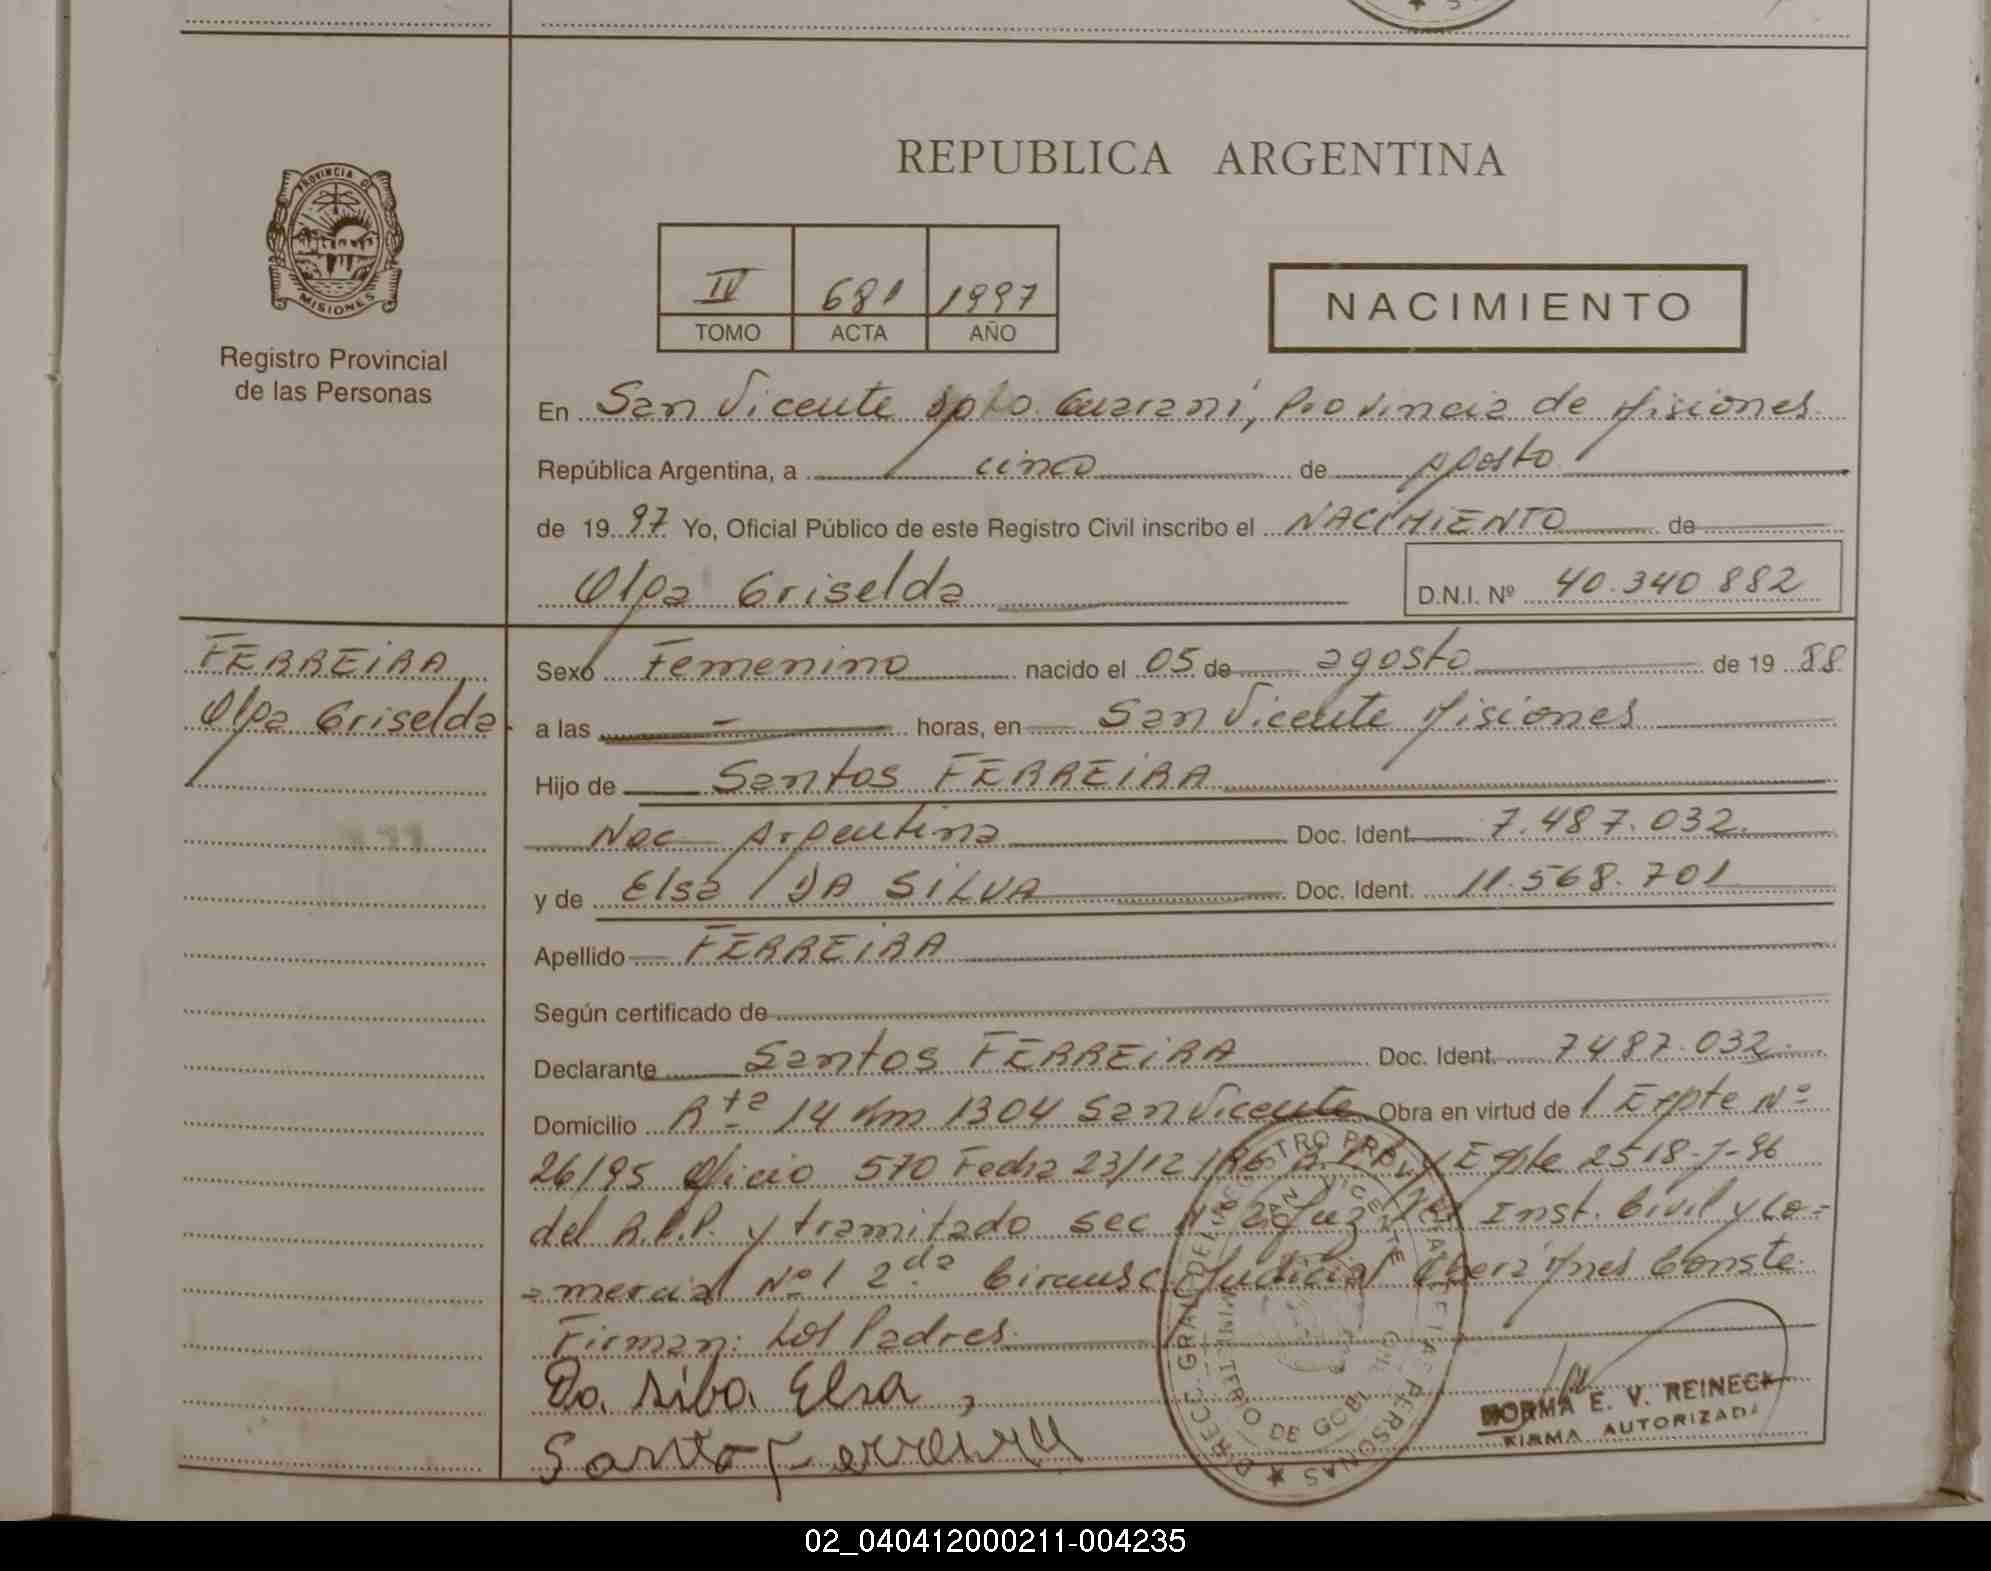 REPUBLICA ARGENTINA
PROVINCIA DE
MISIONES
Registro Provincial
de las Personas
IV 681 1997
TOMO ACTA AÑO
NACIMIENTO
En San Vicente Dpto. Guaraní, Provincia de Misiones
República Argentina, a cinco de Agosto
de 1997 Yo, Oficial Público de este Registro Civil inscribo el NACIMIENTO de
Olga Griselda
D.N.I. Nº 40.340.882
FERREIRA
Olga Griselda
Sexo Femenino nacido el 05 de agosto de 19 88
a las - horas, en San Vicente Misiones
Hijo de Santos FERREIRA
Nac Argentina Doc. Ident. 7.487.032.
y de Elsa DA SILVA Doc. Ident. 11.568.701
Apellido FERREIRA
Según certificado de
Declarante Santos FERREIRA Doc. Ident. 7487.032.
Domicilio Rta 14 Km 1304 San Vicente Obra en virtud de 1 Expte Nº
26/95 Oficio 570 Fecha 23/12/96 y Expte 2518-J-96
del R.P.P. y tramitado sec Nº 2 Juz Inst. Civil y Co=
=mercial Nº 1 2da Circunsc. Judicial Oberá Mnes Conste.
Firman: Los Padres.
Da Silva Elsa,
Santo Ferreira
NORMA E. V. REINECK
FIRMA AUTORIZADA
02_040412000211-004235